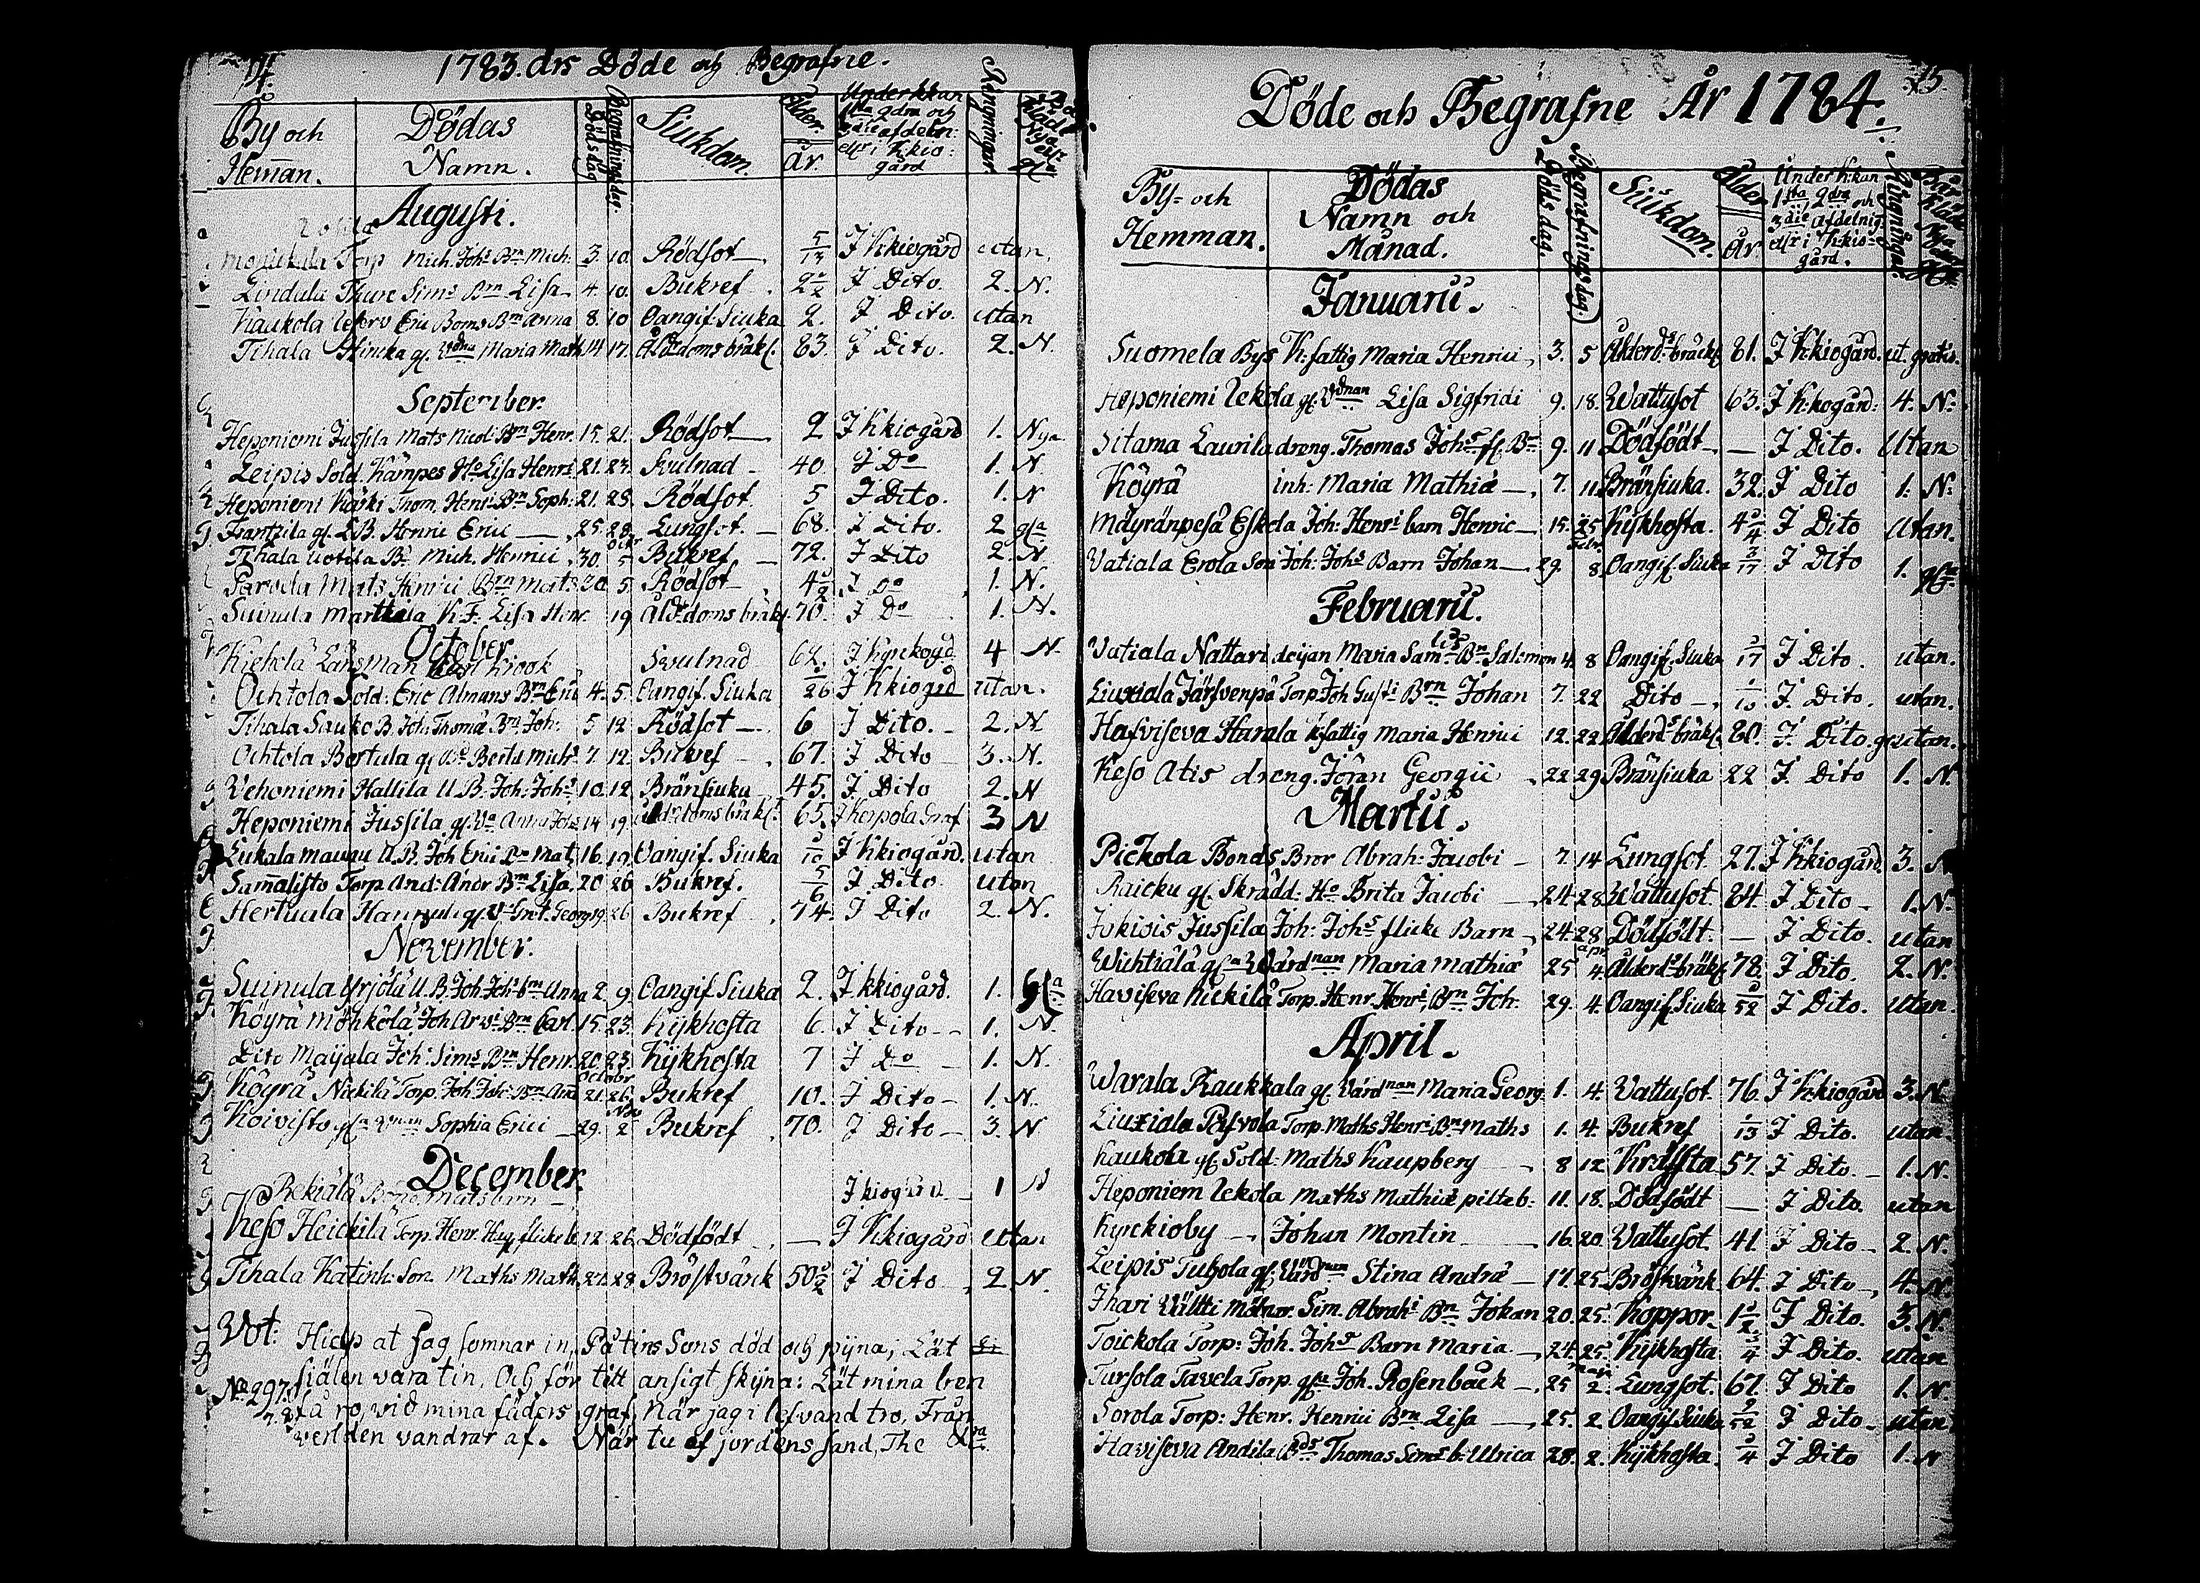 14.
1783. års Döde och Begrafne.
By och Heman. Dödas Namn. Dödsdag Begrafningsdag. Siukdom. Ålder. år. Under kkan 1sta 2dra och 3die afdeln: elr i kkio- gård Ringningar
Augusti.
Torp Mich. Johs Bn Mich. 3. 10. Rödsot 5/13 J kkiogård utan.
Lindula Thure Sims Bn Lisa 4. 10. Bukref J Dito. 2. N.
Kaukola Bn Anna 8. 10 Oangif. Siuka 2. J Dito. utan
Tihala gl. Maria Math 14. 17. Ålderdoms bräkl. 83. J Dito. 2. N.
September.
Heponiemi Jussila Mats Nicol. Bn Henr. 15. 21. Rödsot 2 J kkiogård 1. Nya
Leipis Sold. Kämpes Ho Lisa Henri 21. 23. Svulnad 40. J Do 1. N
Heponiemi Kärki Thom. Henri Bn Soph. 21. 28. Rödsot 5 J Dito. 1. N
Frantzila gl. E.B. Henric Erici 25. 28. Lungsot. 68. J Dito. 2 gla
Tihala Uotila Bd Mich. Henrici 30. 5 Bukref 72. J Dito 2. N
Mats Henrici Bn Mats 30. 5. Rödsot J Do 1. N.
Suinula Marttala K.F. Lisa Henr. 19 Ålderdoms bräkl. 70. J Do 1. N.
October
Kickola Länsman Krook Svulnad 4 N.
Ochtola Sold. Eric Almans Bn Eric 4. 5. Oangif. Siuka 1/26 J kkiogård utan.
Tihala Sauko B. Joh. Thomæ Bn Joh: 5 12 Rödsot 6 J Dito. 2. N
Ochtola Bertula gl. Bertil Mich: 7 12. Bukref 67. J Dito 3. N.
Vehoniemi Hallila U.B. Joh: Johs 10. 12. Bränsiuka 45. J Dito 2. N
Heponiemi Jussila gl. Va Anna Johs 14 19. Ålderdoms bräkl. 65. J Kerpola Graf 3 N
Lukala Maunu U.B. Joh Erici Bn Mat. 16. 19. Oangif. Siuka J kkiogård. utan
Samalisto Torp And: Andr Bn Lisa. 20 26 Bukref. 5/6 J Dito utan
Hertuala Georg 19. 26. Bukref 74. J Dito 2. N.
November.
Suinula Yrjölä U.B. Joh Johs bn Anna 2. 9. Oangif. Siuka 2. J kkiogård. 1. gla
Köyrä Möhkölä Joh Arvi Bn Carl. 15. 23. Kijkhosta 6. J Dito 1. N.
Dito Maijala Joh: Sims Bn Henr. 20. 23. Kijkhosta 7 J Do 1. N.
Octobr
Köyrä Nickilä Torp. Joh Johs Bn And 21. 26. Bukref 10. J Dito 1. N.
Koivisto gla Sophia Erici 29. 2 Bukref 70. J Dito 3. N
December
Rekiälä J kkiogård 1 N
Keso Heickilä Torp. Henr. flicke b. 12. 26. Dödfödt — J Kkiogård utan
Tihala Katinh: Son. Maths Math. 27. 28. Bröstvärck 50 1/2 J Dito 2 N.
Vot: Hielp at jag somnar in, På tins Sons död och pijna, Lät
siälen vara tin, Och för titt ansigt skijna: Lät mina been
No 297. v. 8
få ro, vid mina fäders graf, När jag i lefvand tro, Från
verlden vandrar af. När tu af jordens sand, The &ra
15.
Döde och Begrafne År 1784.
By- och Hemman. Dödas Namn och Månad. Dödsdag. Begrafningsdag. Siukdom. Ålder År Under K:kan 1sta 2dra och 3die afdelnig elr i K:kio- gård. Ringningar
Januarii.
Suomela Bys K:fattig Maria Henrici 3. 5 Ålderds bräckl 81. J K:kiogård. ut. gratis.
Heponiemi Uckola gl. Vdnan Lisa Sigfridi 9. 18. Wattusot 63. J K:kogård: 4. N:
Sitama Laurila dreng. Thomas Johs fl. Bn 9. 11 Dödfödt — J Dito. Utan
Köyrä inh: Maria Mathiæ 7. 11. Bränsiuka. 32. J Dito 1. N:
Mäyränpesä Eskola Joh: Henrs barn Henric 15. 25 Kijkhosta. 4 3/4 J Dito Utan.
Febr.
Vatiala Erola Son Joh: Johs Barn Johan 29. 8. Oangif. Siuka 3/17 J Dito 1. gla
Februarii.
Vatiala Nattari deijan Maria Bn Salomon 4. 8 Oangif. Siuka J Dito. utan.
Liuxiala Järfvenpä Torp. Joh Gusti Brn Johan 7. 22 Dito J Dito. utan.
Hafviseva Harala K:fattig Maria Henrici 12. 22 Ålderds bräckl. 80. J. Dito. utan.
Keso Atis dreng. Jöran Georgii 22 29 Bränsiuka 22 J. Dito 1. N
Martii.
Pickola Bonds Bror Abrah: Jacobi 7. 14 Lungsot. 27. J K:kiogård. 3. N
Raicku gl. Skrädd: Ho Brita Jacobi 24. 28 Wattusot. 84. J Dito 1. N.
Jokiois Jussila Joh: Johs flicke Barn 24. 28 Dödfödt. — J Dito. utan
apr
Wichtiälä gla Vårdnan Maria Mathiæ 25 4. Ålderds bräkl 78. J Dito. 2. N.
Haviseva Nickilä Torp. Henr. Henrs. Bn Joh: 29. 4. Oangif Siuka J Dito. utan.
April.
Warala Raukkala gl. Vårdnan Maria Georg 1. 4. Vattusot. 76. J K:kiogård 3. N
Liuxiala Torp. Maths Henrs Bn Maths 1. 4. Bukref 1/13 J Dito. utan.
Kaukola gl. Sold: Maths Kaupberg 8 12 Kräffta 57. J Dito 1. N.
Heponiem Uckola Maths Mathiæ pilteb: 11. 18. Dödfödt — J Dito. utan
Kyrckioby — Johan Montin 16. 20. Vattusot. 41. J Dito 2. N.
Leipis Tubola gl: Vårdnan Stina Andræ 17. 25. Bröstvärck. 64. J Dito 4. N.
Jhari Sim. Abrahs Bn Johan 20. 25. Koppor 1 1/2 J Dito. 3. N.
Toickola Torp: Joh. Johs Barn Maria 24. 25. Kijkhosta 3/4 J Dito. utan
maji
Tursola Tavela Torp. gla Joh. Rosenbäck 25 2. Lungsot. 67. J Dito 1. N.
Sorola Torp: Henr. Henrici Brn Lisa 25. 2. Oangif Siuka J Dito utan
Haviseva Andila Bds Thomas Sims b: Ulrica 28. 2. Kijkhosta. 3/4 J Dito 1. N